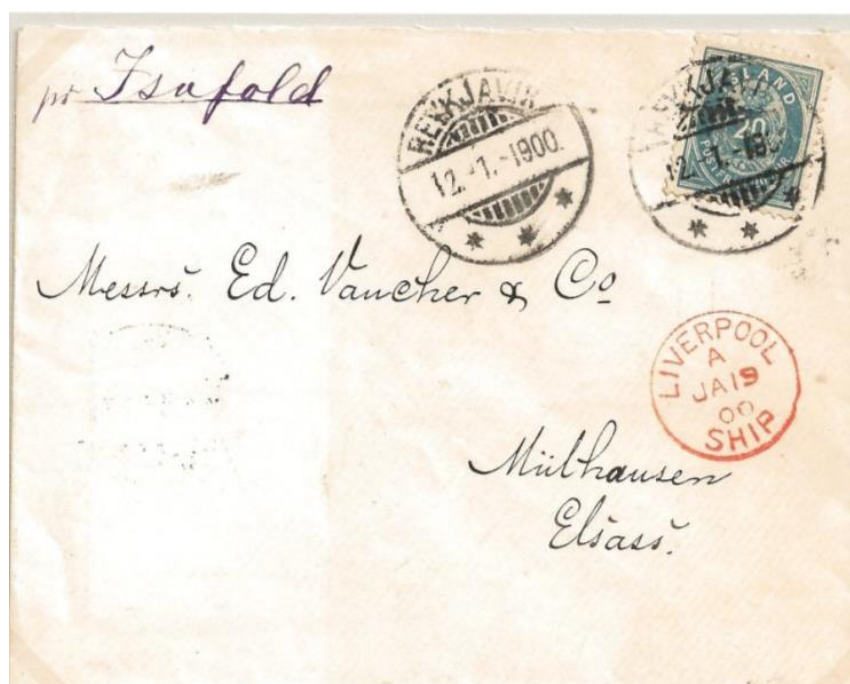 pr Isafold
REYKJAVIK
12.-1.-1900.
ÍSLAND
20
12.-1.-190
Messrs. Ed. Vaucher & Co
LIVERPOOL
A
JA19
00
SHIP
Mülhausen
Elsass.